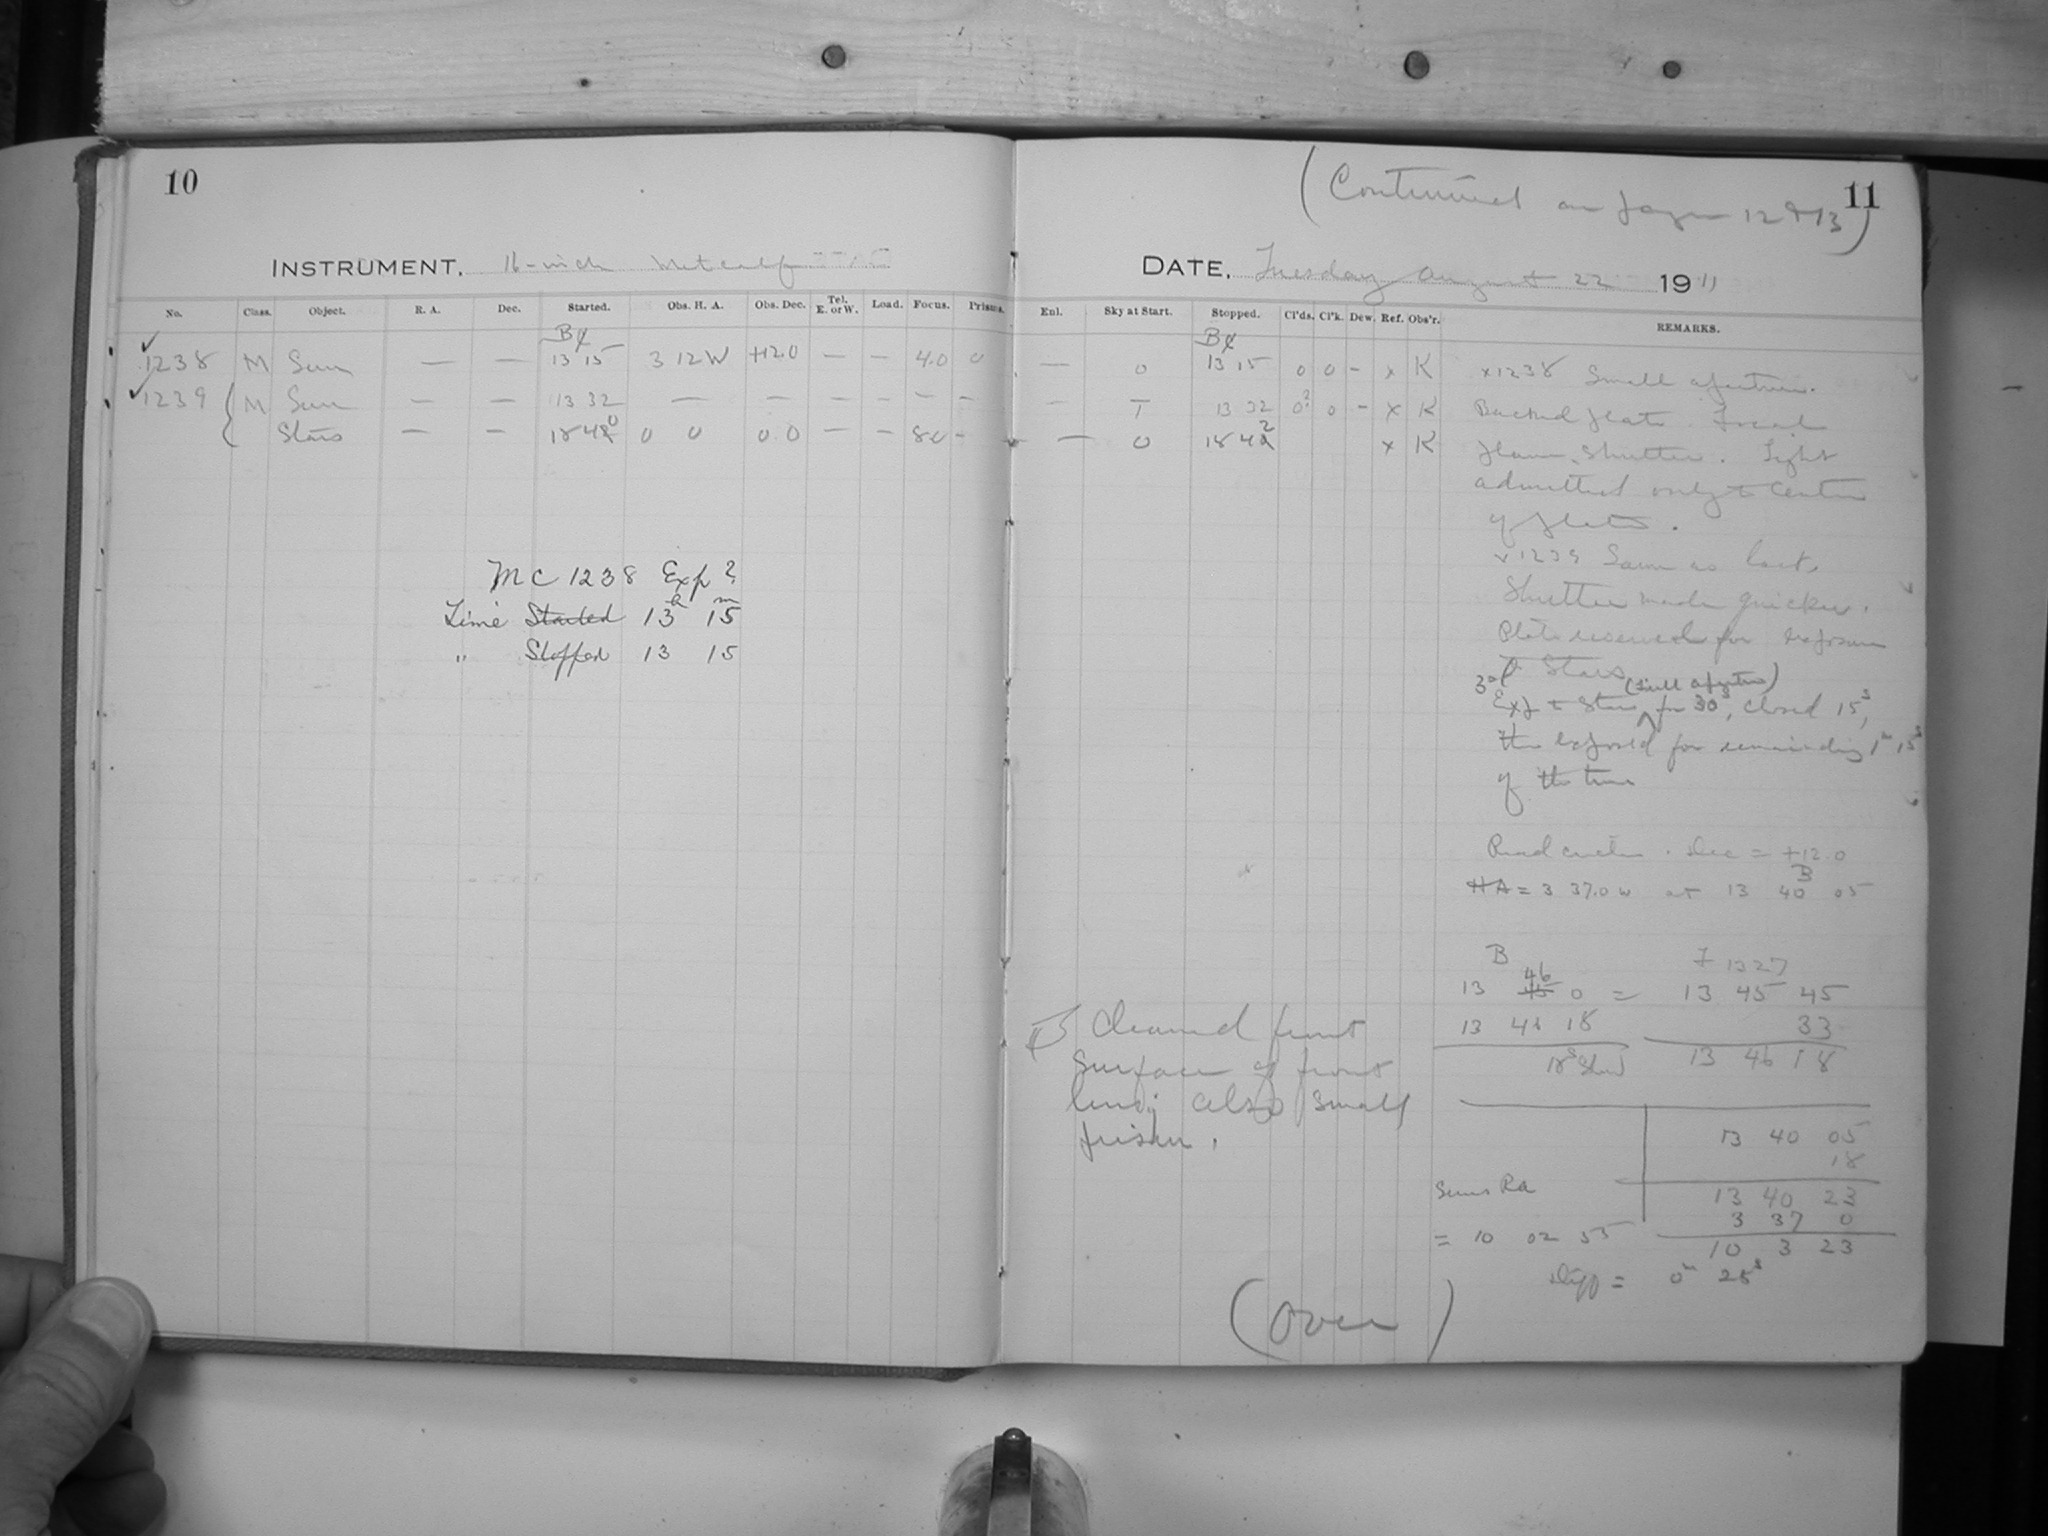 10
INSTRUMENT, 16-inch Metcalf
No. Class. Object. R. A. Dec. Started. Obs. H. A. Obs. Dec. Tel. E. or W. Load. Focus. Prisms.
B¢
1238 M Sun — — 13 15 3 12 W +12.0 — — 4.0 0
1239 M Sun — — 13 32 — — — — — —
Stars — — 18 40 0 0 0.0 — — 8.0 -
MC 1238 Exp ?
Time Started 13h 15m
" Stopped 13 15
(Continued on page 12 & 13)
11
DATE, Tuesday August 22 1911
Enl. Sky at Start. Stopped. Cl'ds. Cl'k. Dew. Ref. Obs'r. REMARKS.
B¢
— 0 13 15 0 0 - x K x1238 Small aperture.
— T 13 32 0? 0 - x K Backed plate. Focal
— 0 18 42 x K plane shutter. Light
admitted only to center
of plate.
x1239 Same as last.
Shutter made quicker.
Plate reserved for exposure
to Stars
Exp to Stars (full aperture) for 30s, closed 15s,
then exposed for remaining 1m 15s
of the time
Read circles. Dec = +12.0
HA = 3 37.0 W at 13 40 05
B
B F 1327
13 45 46 0 = 13 45 45
13 46 18 33
18s slow 13 46 18
Cleaned front
surface of front
lens; also small
prism.
13 40 05
18
Suns Ra 13 40 23
3 37 0
= 10 02 55 10 3 23
Diff = 0m 28s
(Over)